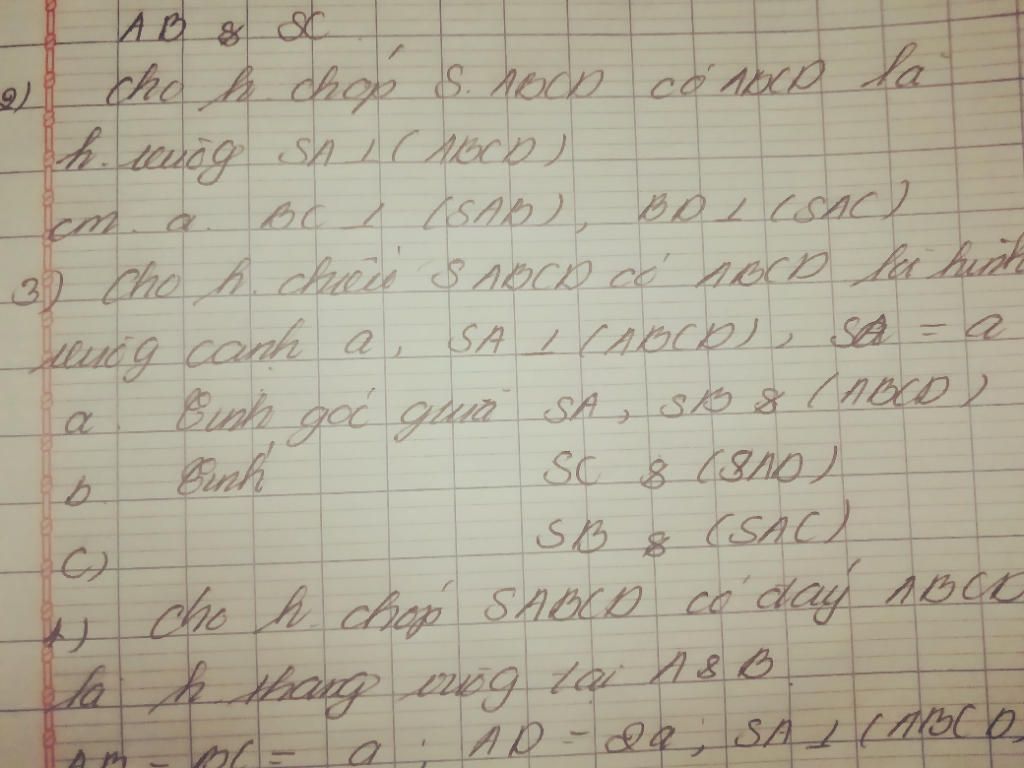 AB & SC
2) Cho h chóp S.ABCD có ABCD là
h. vuôg SA ⊥ (ABCD)
cm. a. BC ⊥ (SAB), BD ⊥ (SAC)
3) Cho h. SABCD có ABCD là hình
vuôg cạnh a, SA ⊥ (ABCD), SA = a
a. Tính góc giữa SA, SB & (ABCD)
b. Tính SC & (SAD)
c) SB & (SAC)
Cho h. chóp SABCD có đáy ABCD
là h thang vuôg tại A & B.
AB = BC = a; AD = 2a; SA ⊥ (ABCD)